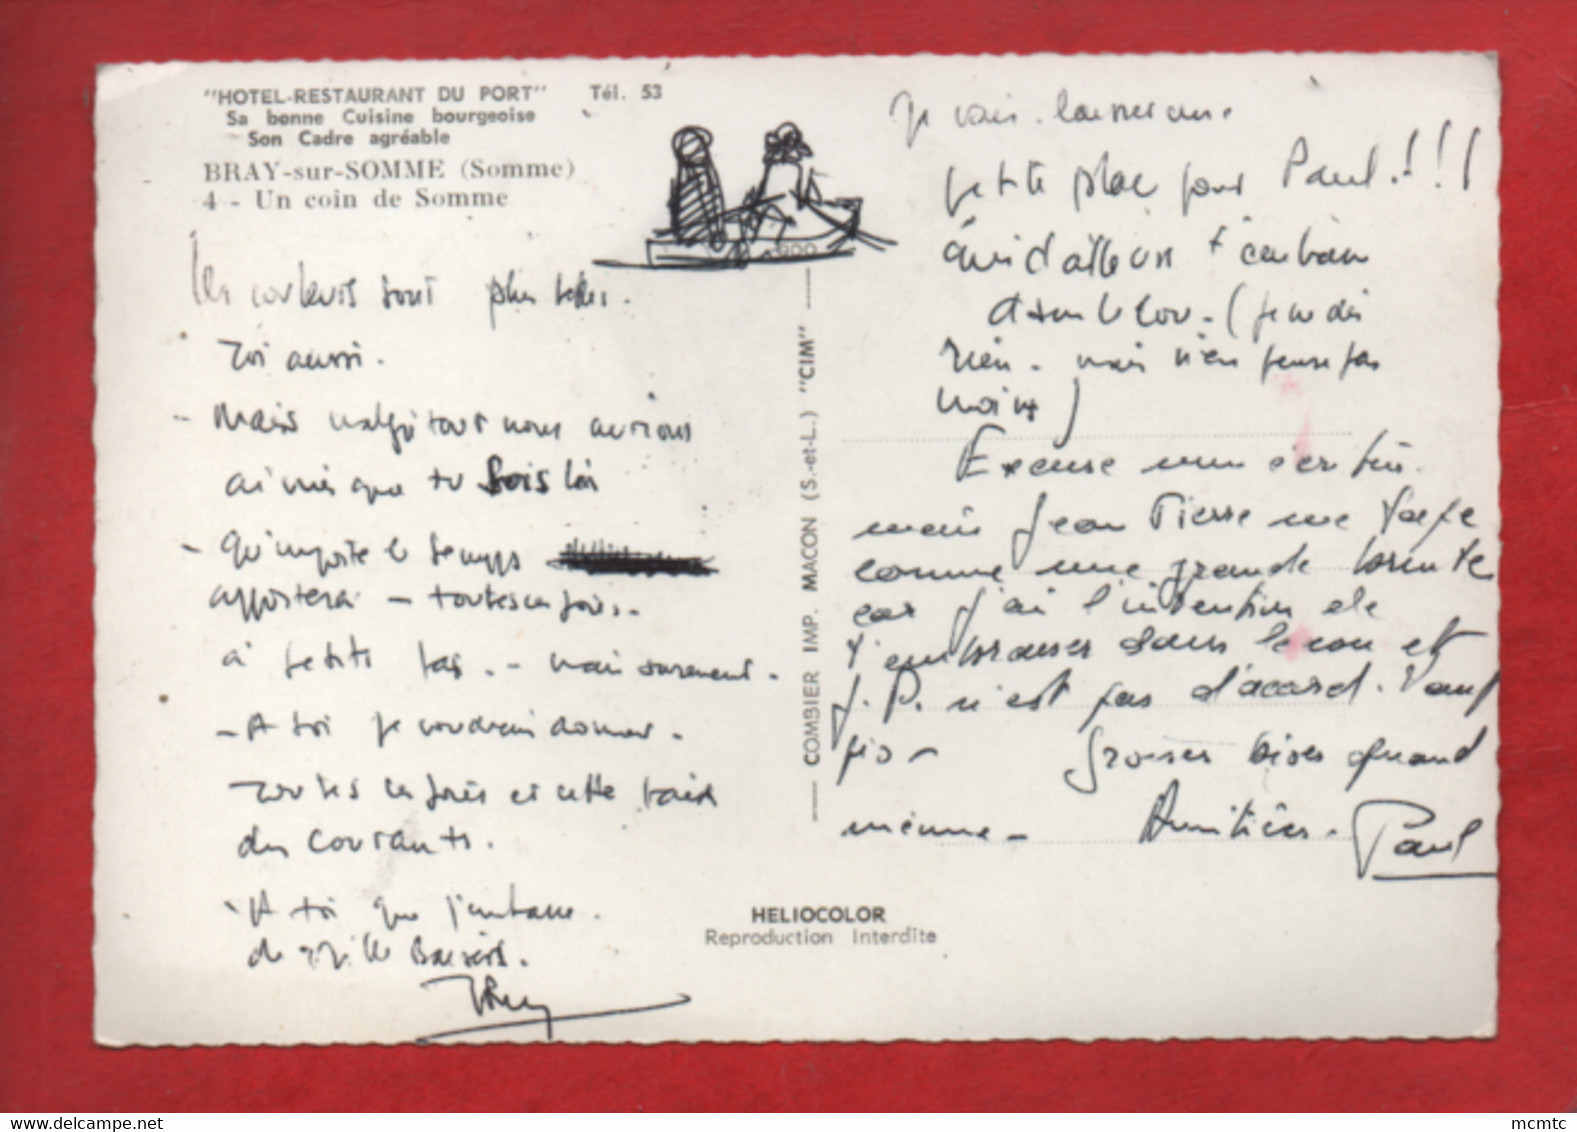 "HOTEL-RESTAURANT DU PORT" Tél. 53
Sa bonne Cuisine bourgeoise
Son Cadre agréable
BRAY-sur-SOMME (Somme)
4 - Un coin de Somme
Les couleurs sont plus belles.
Toi aussi.
- Mais malgré tout nous aurions
aimés que tu sois là
- Qu'importe le temps
apportera - toutes ces joies.
à petits pas. - mais surement.
- A toi je voudrais donner.
Toutes ces joies et cette
des courants.
- A toi que j'embrasse.
de Mille Baisers.
900
COMBIER IMP. MACON (S.-et-L.) "CIM"
HELIOCOLOR
Reproduction Interdite
Je vais laisser une
petite place pour Paul!!!
Qui d'ailleurs t'embrasse
dans le cou. (je ne dis
rien. mais n'en pense pas
moins)
Excuse mon
mais Jean Pierre me
comme une grande
car j'ai l'intention de
t'embrasser dans le cou et
J.P. n'est pas d'accord. Tant
pis - Grosses bises quand
même - Amitiés. Paul
mcmtc